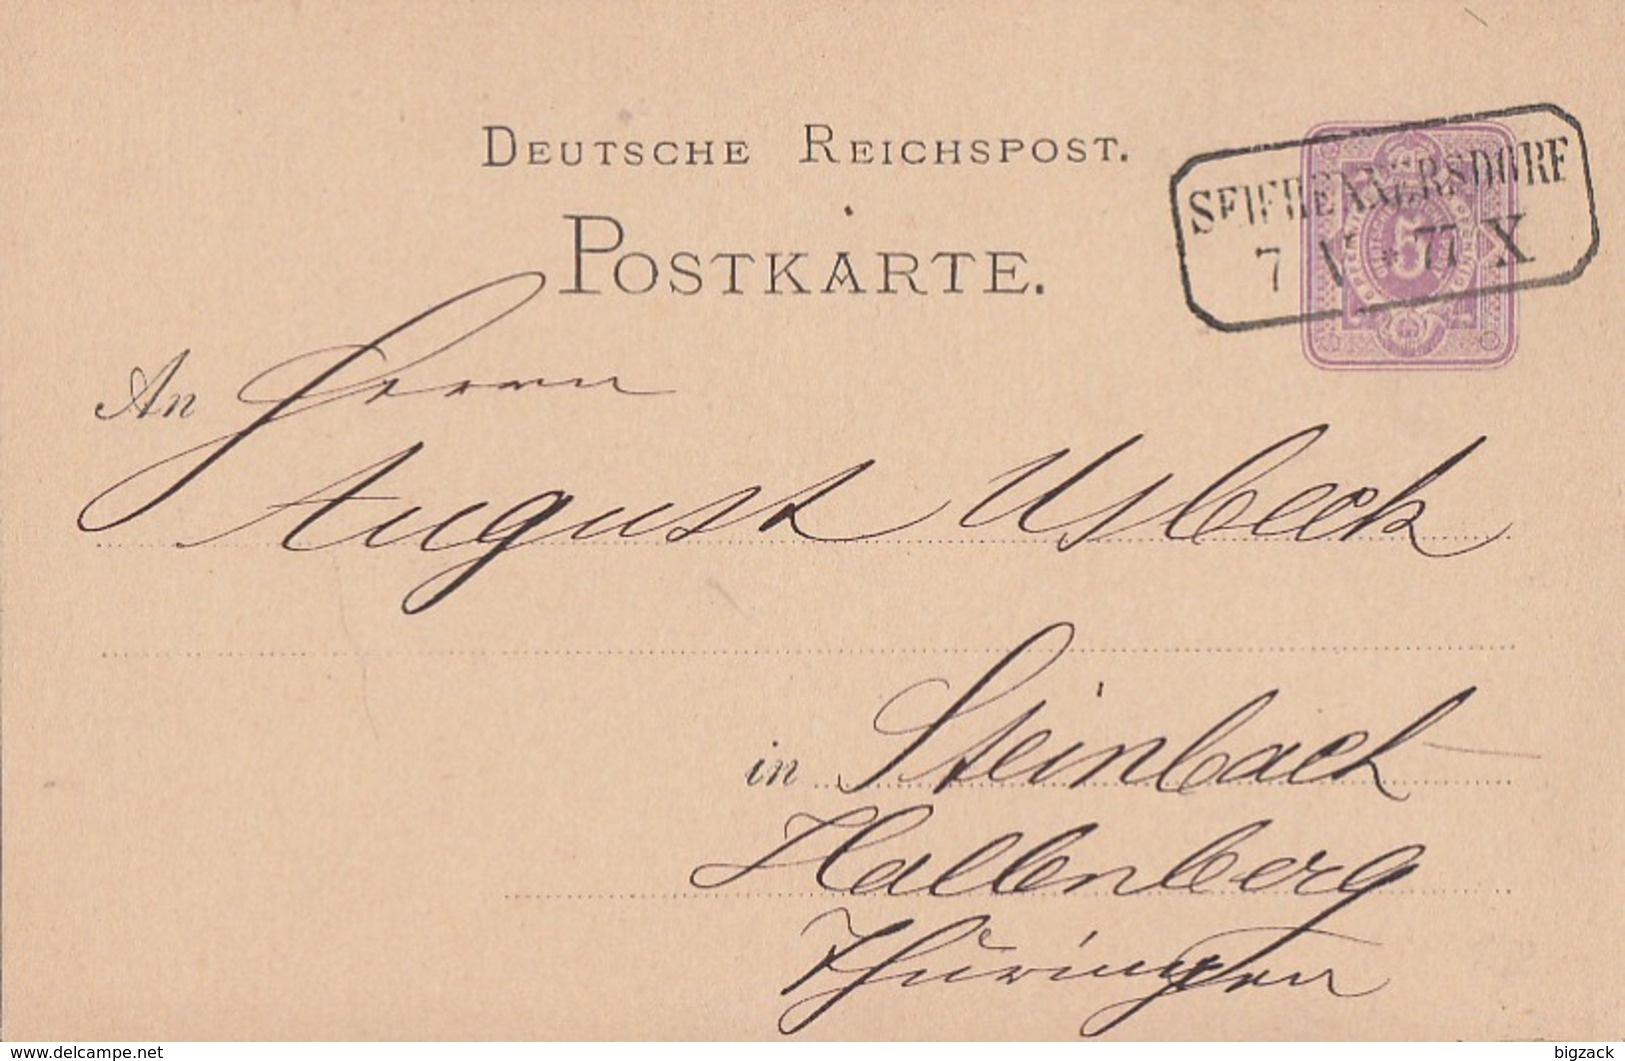 DEUTSCHE REICHSPOST.
POSTKARTE.
SEIFHENNERSDORF
7 V * 77 X
5
An Herrn
August Usbeck
in Steinbach
Hallenberg
Thüringen
www.delcampe.net
bigzack